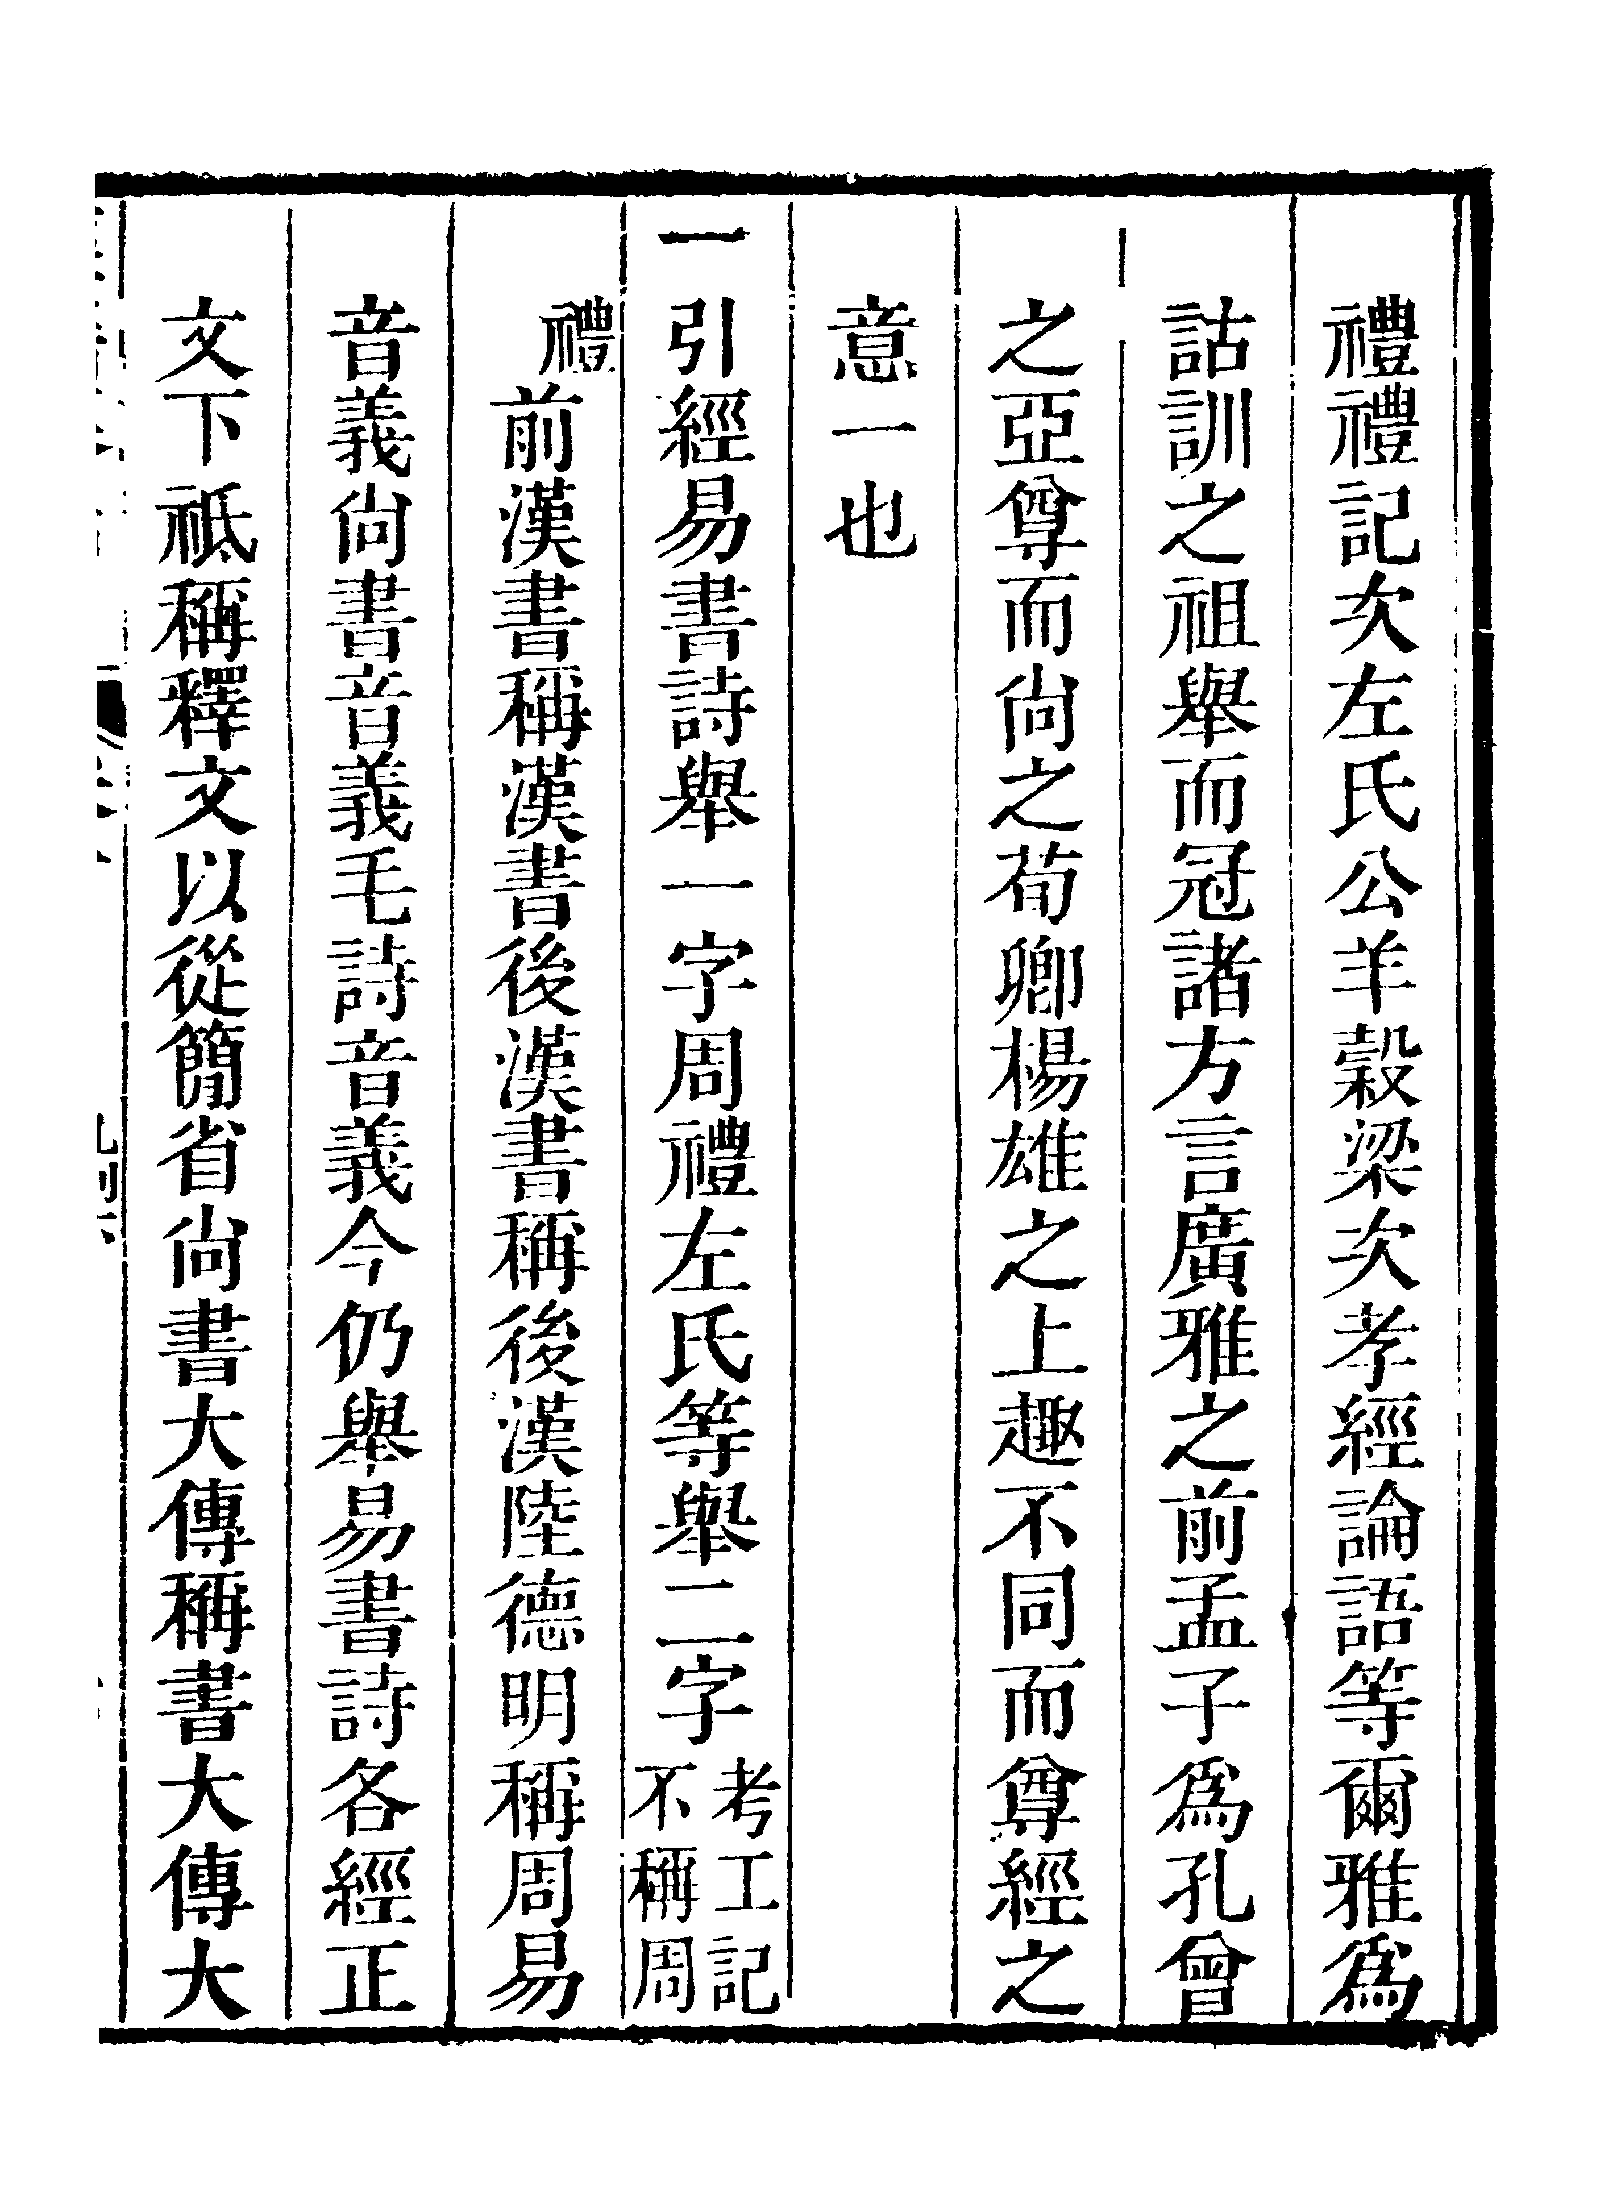 禮禮記次左氏公羊穀梁次孝經論語等爾雅爲
詁訓之祖舉而冠諸方言廣雅之前孟子爲孔曾
之亞尊而尙之荀卿楊雄之上趣不同而尊經之
意一也
一引經易書詩舉一字周禮左氏等舉二字考工記不稱周
禮前漢書稱漢書後漢書稱後漢陸德明稱周易
音義尙書音義毛詩音義今仍舉易書詩各經正
文下祗稱釋文以從簡省尙書大傳稱書大傳大